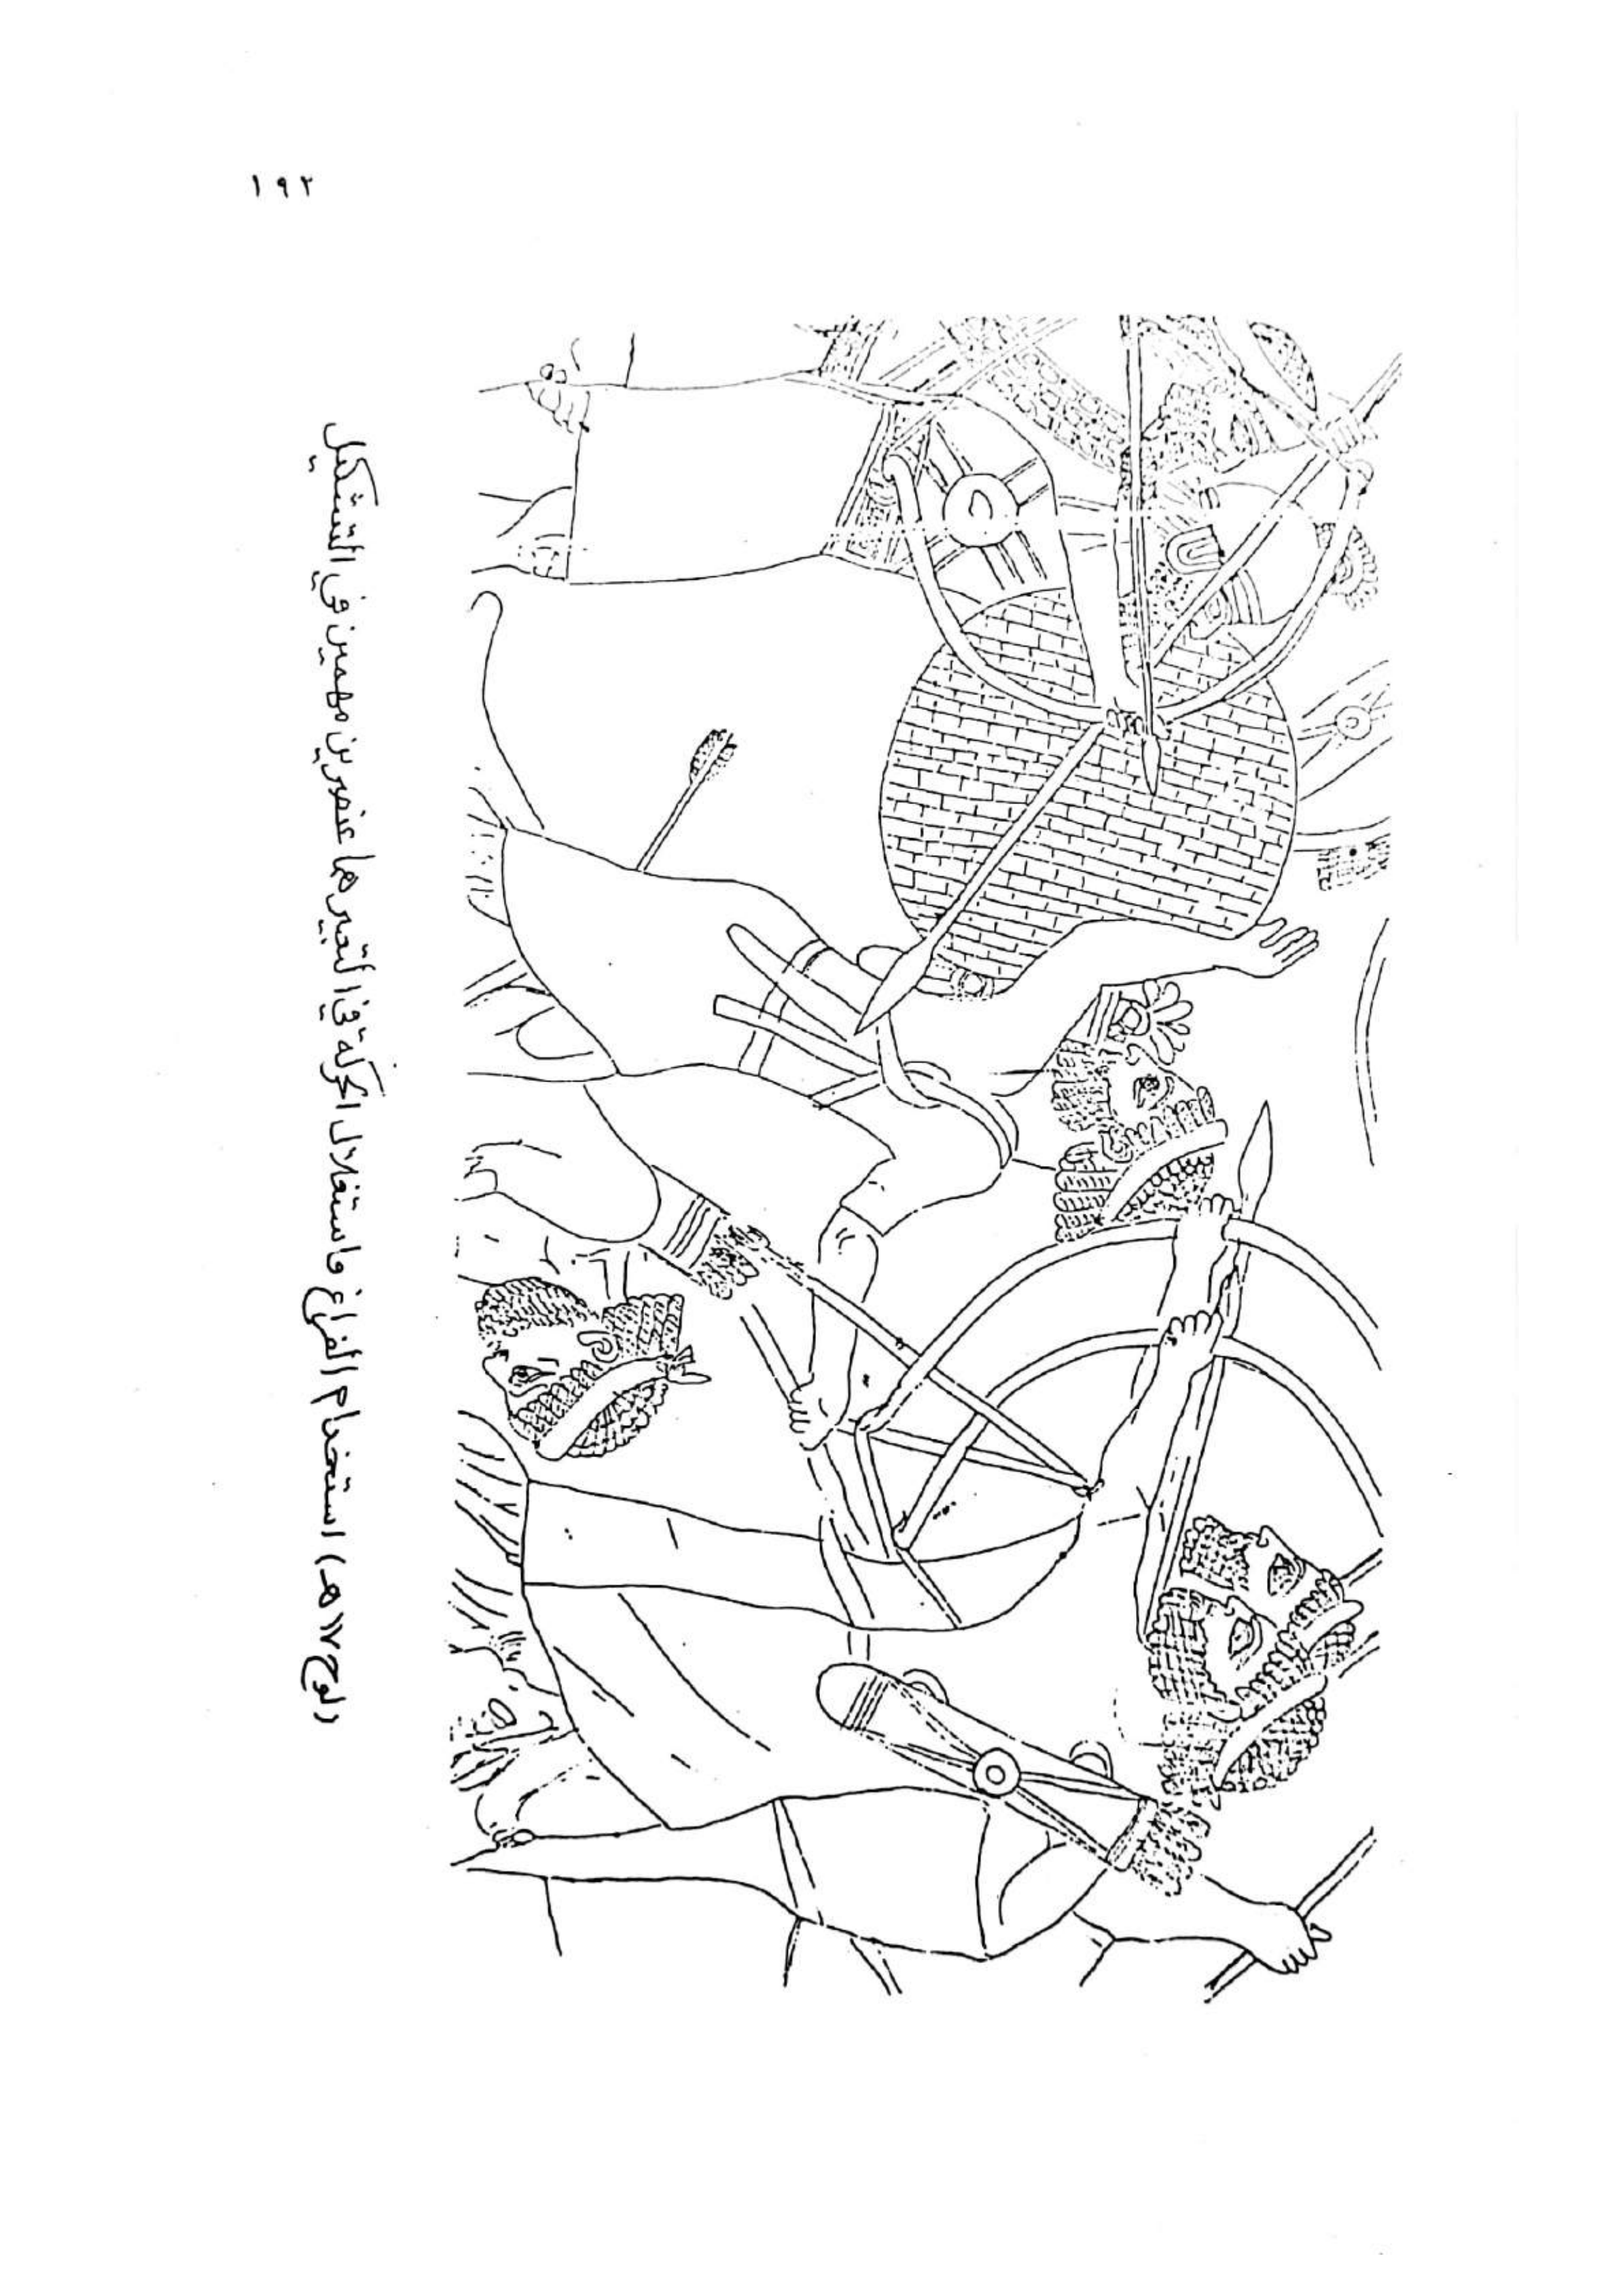 ١٩٢
(لوح ١٧هـ) استخدام الفراغ واستغلال الحركة في التعبير هما عنصرين مهمين في التشكيل